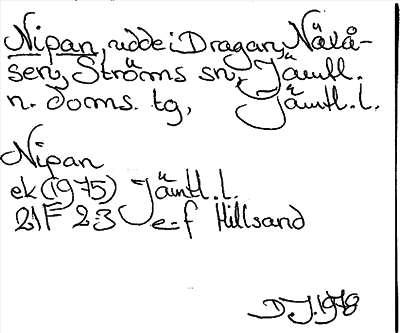 Nipan, udde i Dragan, Nävå-
sen, Ströms sn, Jämtl.
n. doms. tg, Jämtl. l.
Nipan
ek (1975) Jämtl. l.
21F 23 e-f Hillsand
DJ. 1978